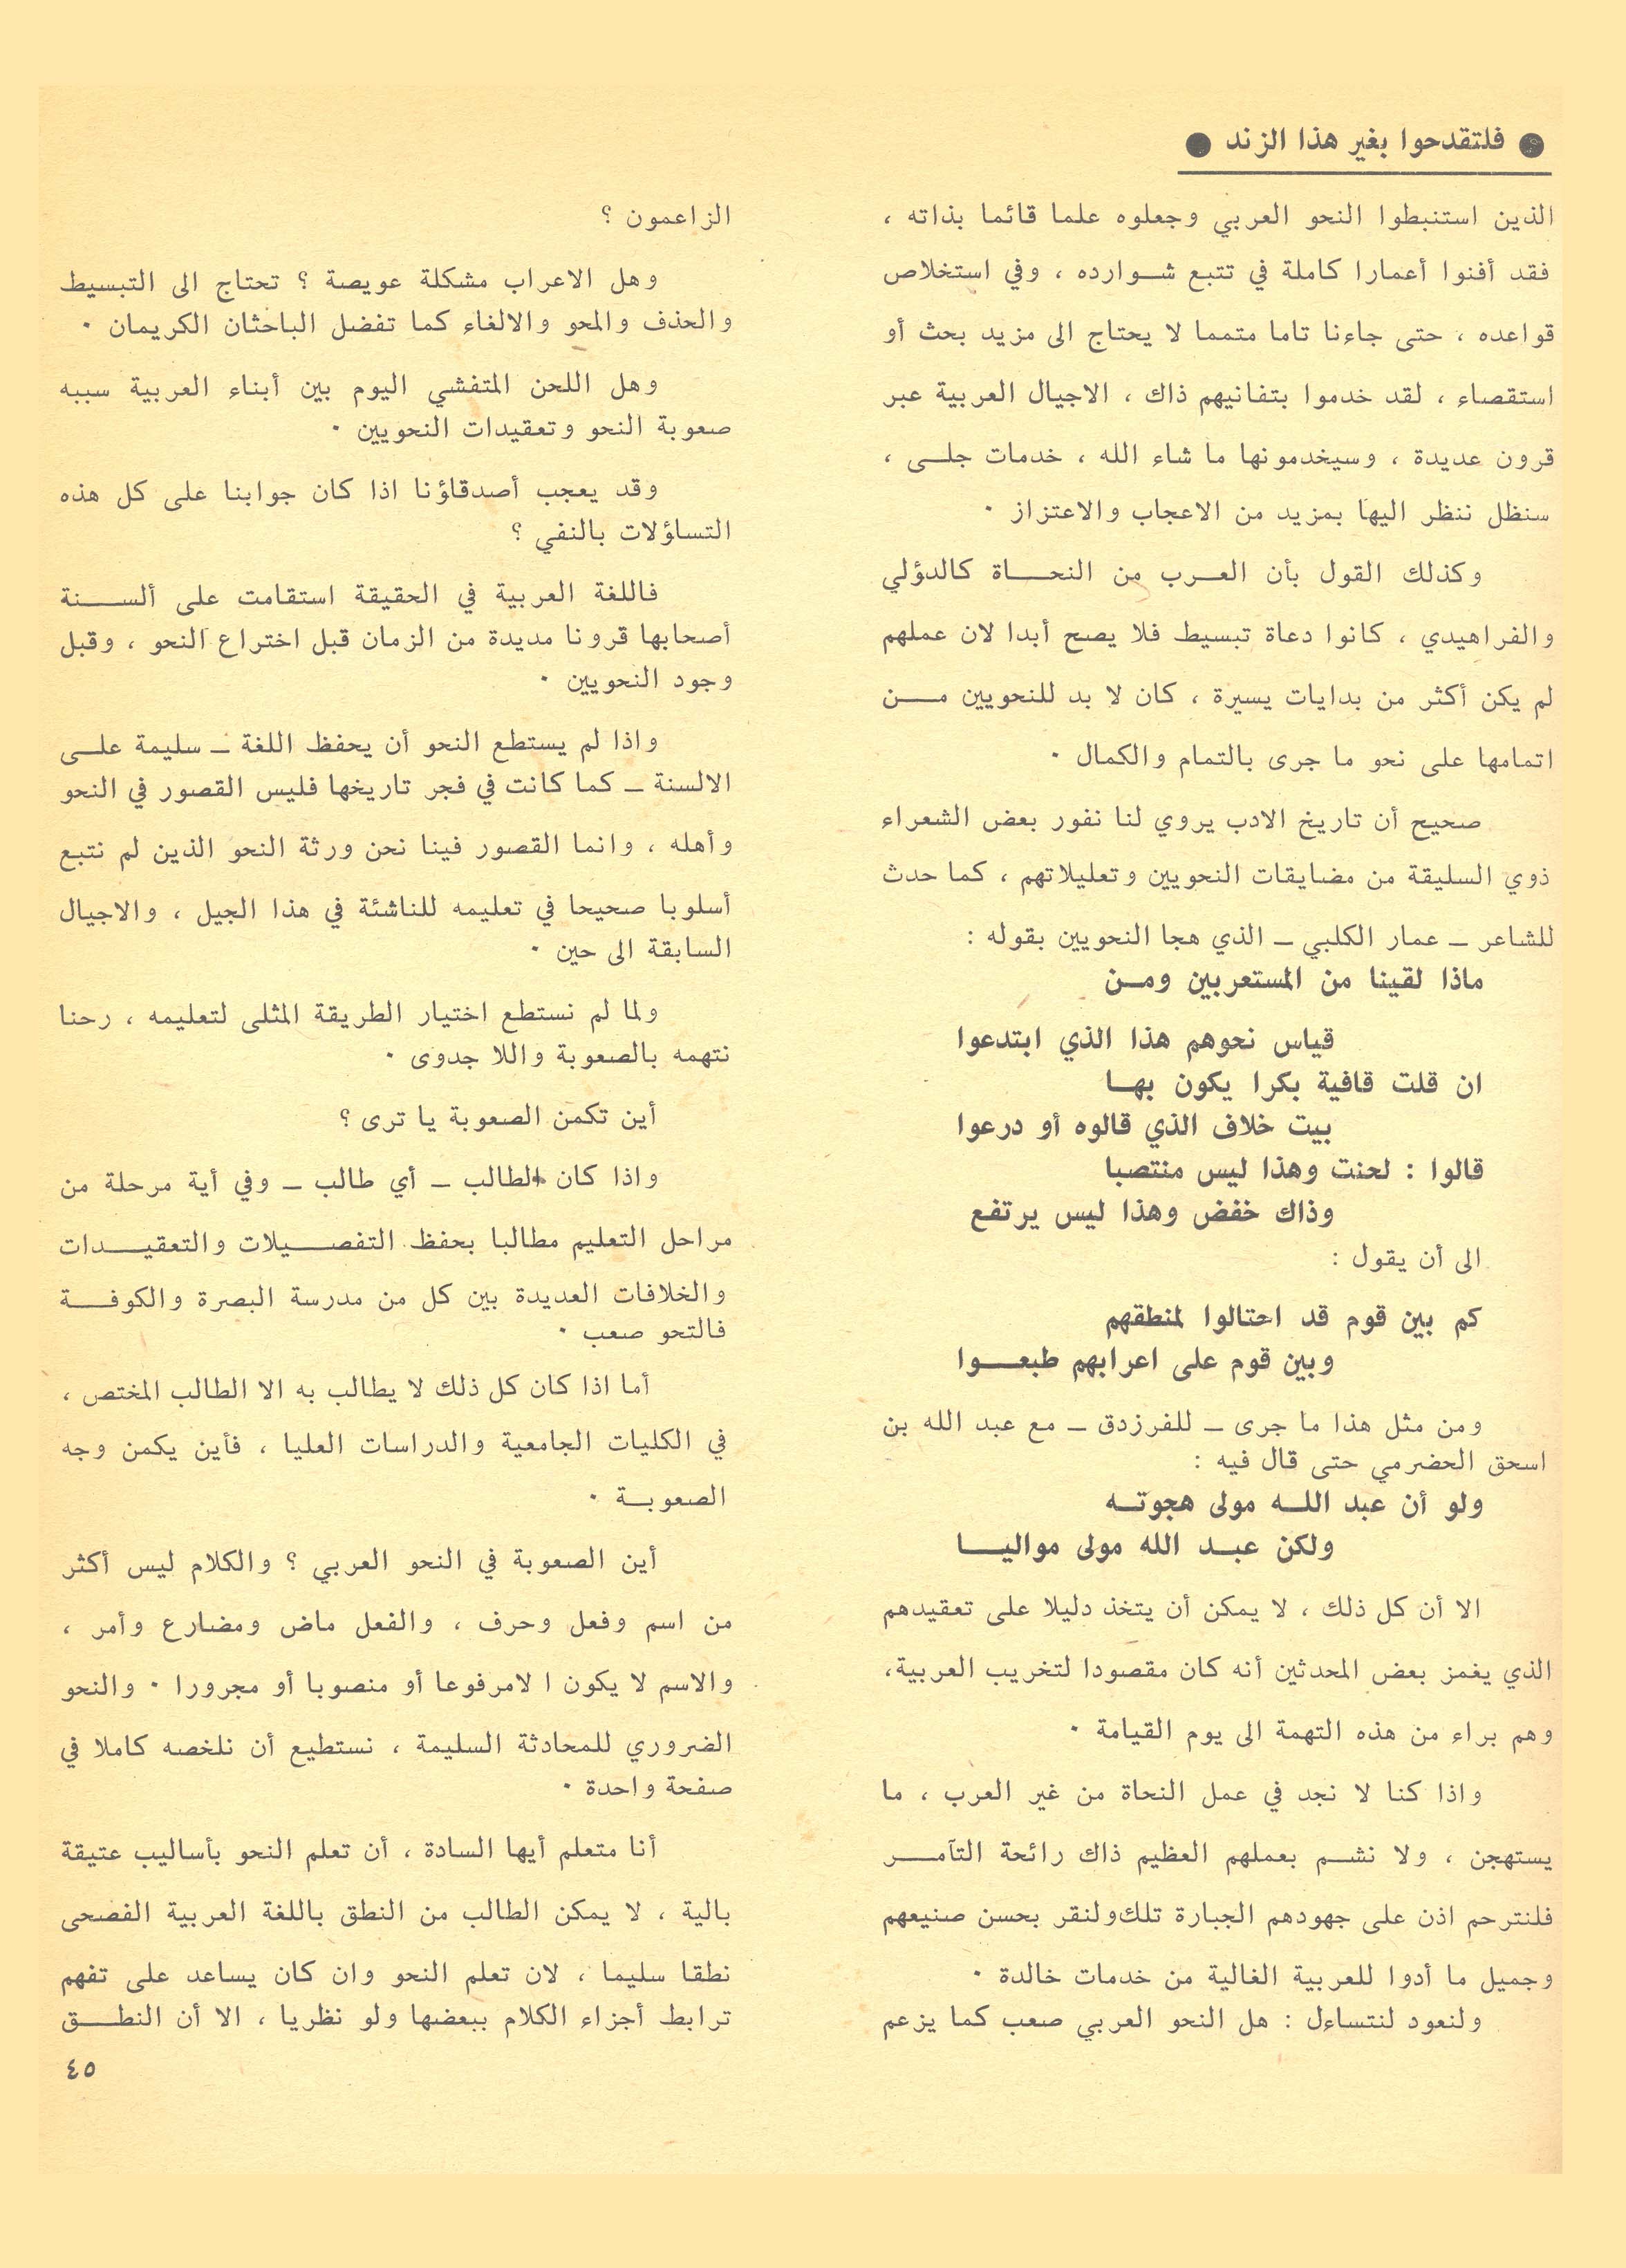 ● فلتقدحوا بغير هذا الزند ●
الذين استنبطوا النحو العربي وجعلوه علما قائما بذاته ،
فقد أفنوا أعمارا كاملة في تتبع شوارده ، وفي استخلاص
قواعده ، حتى جاءنا تاما متمما لا يحتاج الى مزيد بحث أو
استقصاء ، لقد خدموا بتفانيهم ذاك ، الاجيال العربية عبر
قرون عديدة ، وسيخدمونها ما شاء الله ، خدمات جلى ،
سنظل ننظر اليها بمزيد من الاعجاب والاعتزاز .
وكذلك القول بأن العرب من النحاة كالدؤلي
والفراهيدي ، كانوا دعاة تبسيط فلا يصح أبدا لان عملهم
لم يكن أكثر من بدايات يسيرة ، كان لا بد للنحويين من
اتمامها على نحو ما جرى بالتمام والكمال .
صحيح أن تاريخ الادب يروي لنا نفور بعض الشعراء
ذوي السليقة من مضايقات النحويين وتعليلاتهم ، كما حدث
للشاعر – عمار الكلبي – الذي هجا النحويين بقوله :
ماذا لقينا من المستعربين ومن
قياس نحوهم هذا الذي ابتدعوا
ان قلت قافية بكرا يكون بها
بيت خلاف الذي قالوه أو درعوا
قالوا : لحنت وهذا ليس منتصبا
وذاك خفض وهذا ليس يرتفع
الى أن يقول :
كم بين قوم قد احتالوا لمنطقهم
وبين قوم على اعرابهم طبعوا
ومن مثل هذا ما جرى – للفرزدق – مع عبد الله بن
اسحق الحضرمي حتى قال فيه :
ولو أن عبد الله مولى هجوته
ولكن عبد الله مولى مواليا
الا أن كل ذلك ، لا يمكن أن يتخذ دليلا على تعقيدهم
الذي يغمز بعض المحدثين أنه كان مقصودا لتخريب العربية،
وهم براء من هذه التهمة الى يوم القيامة .
واذا كنا لا نجد في عمل النحاة من غير العرب ، ما
يستهجن ، ولا نشم بعملهم العظيم ذاك رائحة التآمر
فلنترحم اذن على جهودهم الجبارة تلك ولنقر بحسن صنيعهم
وجميل ما أدوا للعربية الغالية من خدمات خالدة .
ولنعود لنتساءل : هل النحو العربي صعب كما يزعم
الزاعمون ؟
وهل الاعراب مشكلة عويصة ؟ تحتاج الى التبسيط
والحذف والمحو والالغاء كما تفضل الباحثان الكريمان .
وهل اللحن المتفشي اليوم بين أبناء العربية سببه
صعوبة النحو وتعقيدات النحويين .
وقد يعجب أصدقاؤنا اذا كان جوابنا على كل هذه
التساؤلات بالنفي ؟
فاللغة العربية في الحقيقة استقامت على ألسنة
أصحابها قرونا مديدة من الزمان قبل اختراع النحو ، وقبل
وجود النحويين .
واذا لم يستطع النحو أن يحفظ اللغة – سليمة على
الالسنة – كما كانت في فجر تاريخها فليس القصور في النحو
وأهله ، وانما القصور فينا نحن ورثة النحو الذين لم نتبع
أسلوبا صحيحا في تعليمه للناشئة في هذا الجيل ، والاجيال
السابقة الى حين .
ولما لم نستطع اختيار الطريقة المثلى لتعليمه ، رحنا
نتهمه بالصعوبة واللا جدوى .
أين تكمن الصعوبة يا ترى ؟
واذا كان الطالب – أي طالب – وفي أية مرحلة من
مراحل التعليم مطالبا بحفظ التفصيلات والتعقيدات
والخلافات العديدة بين كل من مدرسة البصرة والكوفة
فالتحو صعب .
أما اذا كان كل ذلك لا يطالب به الا الطالب المختص ،
في الكليات الجامعية والدراسات العليا ، فأين يكمن وجه
الصعوبة .
أين الصعوبة في النحو العربي ؟ والكلام ليس أكثر
من اسم وفعل وحرف ، والفعل ماض ومضارع وأمر ،
والاسم لا يكون ا لامرفوعا أو منصوبا أو مجرورا . والنحو
الضروري للمحادثة السليمة ، نستطيع أن نلخصه كاملا في
صفحة واحدة .
أنا متعلم أيها السادة ، أن تعلم النحو بأساليب عتيقة
بالية ، لا يمكن الطالب من النطق باللغة العربية الفصحى
نطقا سليما ، لان تعلم النحو وان كان يساعد على تفهم
ترابط أجزاء الكلام ببعضها ولو نظريا ، الا أن النطق
٤٥